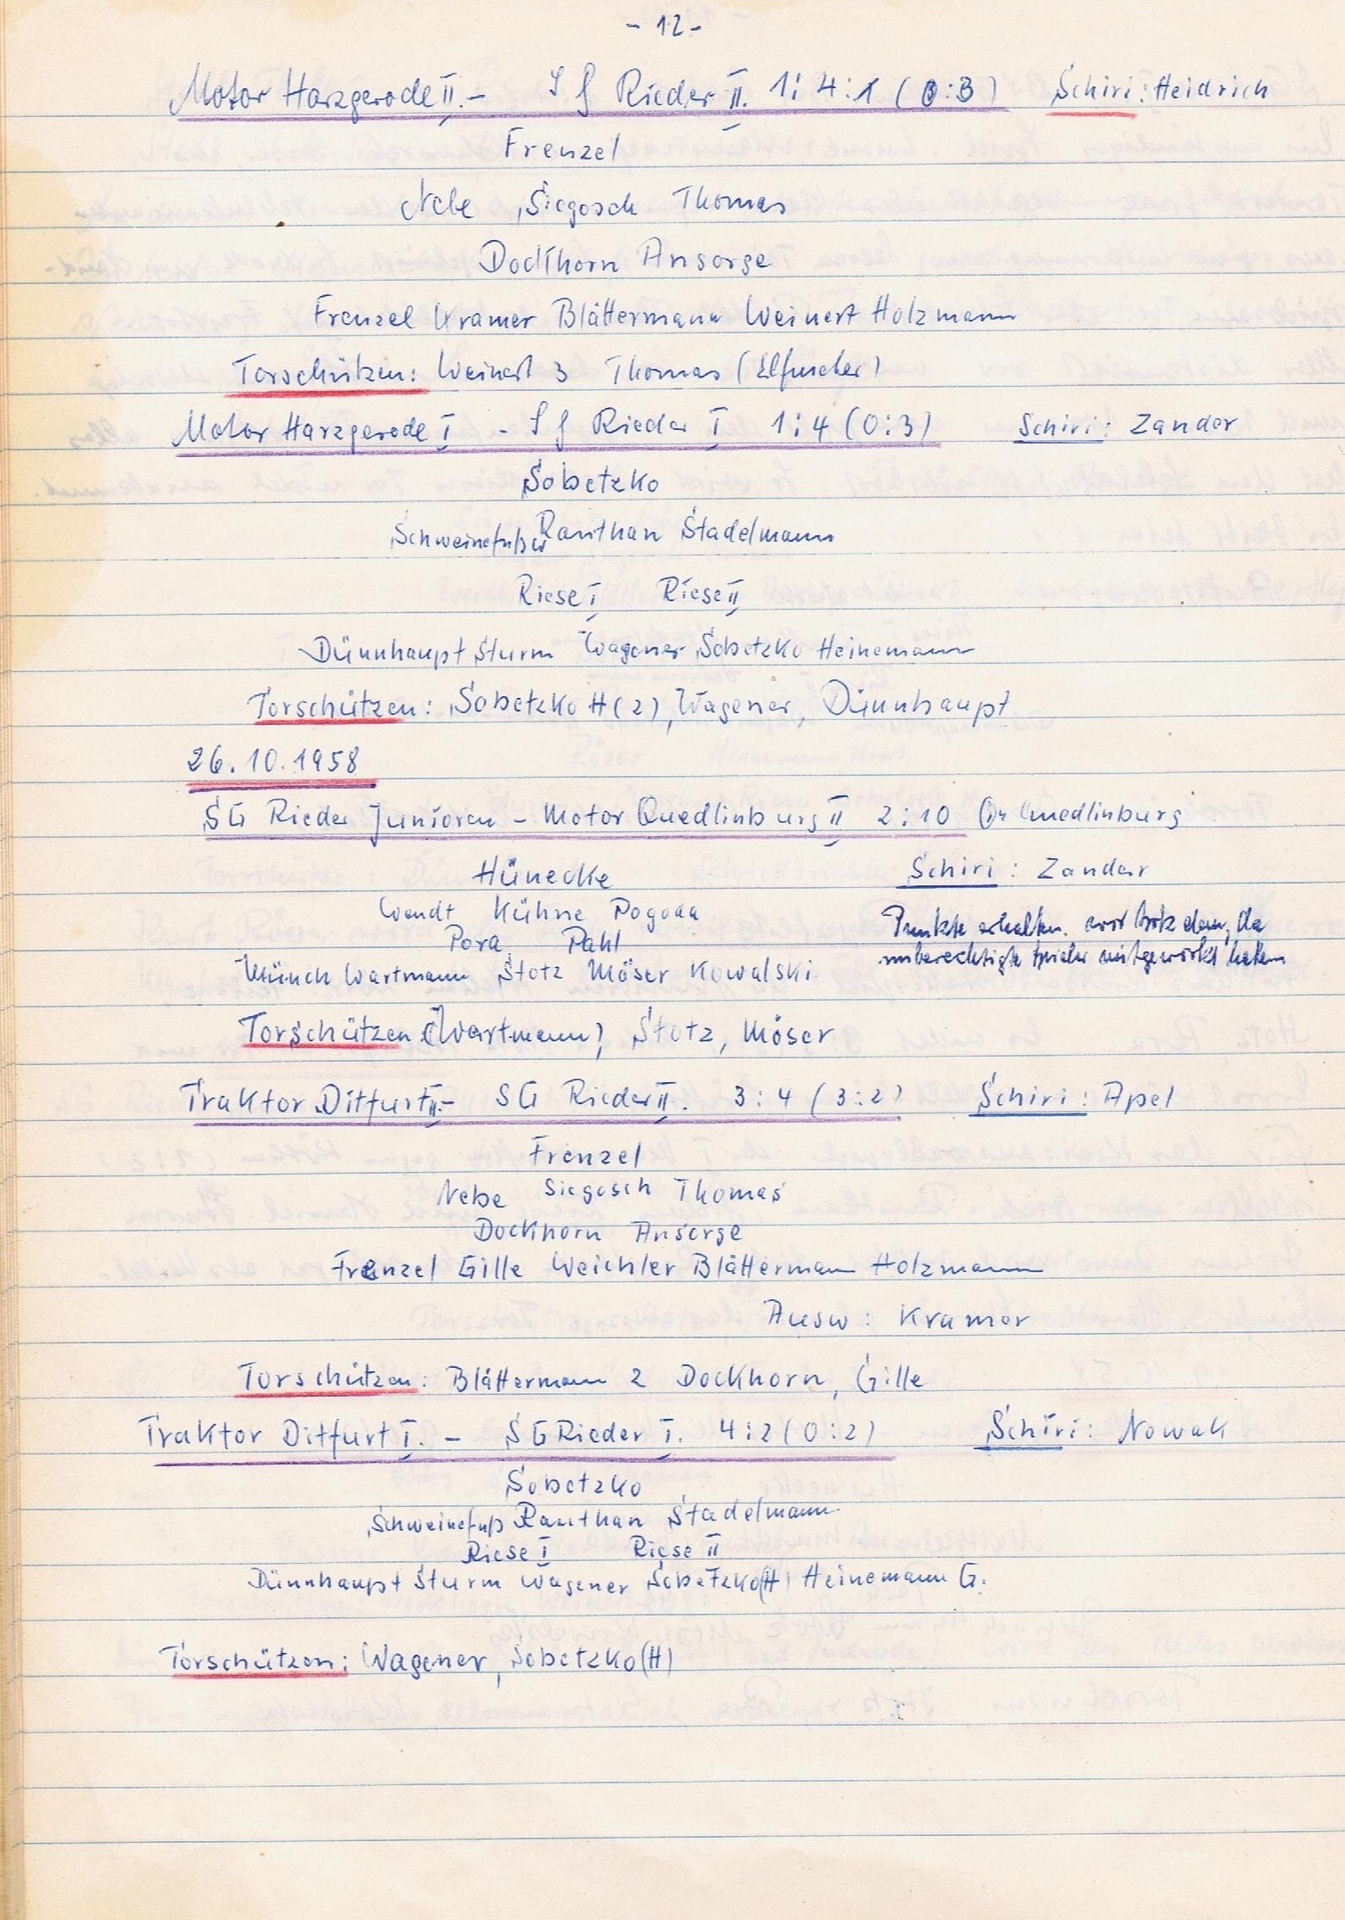 - 12 -
Motor Harzgerode II. - Sg Rieder II. 1:4:1 (0:3) Schiri: Heidrich
Frenzel
Nebe Siegosch Thomas
Dockhorn Ansorge
Frenzel Kramer Blättermann Weinert Holzmann
Torschützen: Weinert 3 Thomas (Elfmeter)
Motor Harzgerode I - Sg Rieder I 1:4 (0:3) Schiri: Zander
Sobetzko
Schweinefuß Ranthan Stadelmann
Riese I Riese II
Dünnhaupt Sturm Wagener Sobetzko Heinemann
Torschützen: Sobetzko H (2), Wagener, Dünnhaupt
26.10.1958
SG Rieder Junioren - Motor Quedlinburg II 2:10 Quedlinburg
Hünecke Schiri: Zander
Wendt Kühne Pogoda
Pora Pahl
Punkte erhalten wir trotzdem, da
unberechtigte Spieler mitgewirkt haben
Münch Wartmann Stotz Möser Kowalski
Torschützen (Wartmann), Stotz, Möser
Traktor Ditfurt II. - SG Rieder II. 3:4 (3:2) Schiri: Apel
Frenzel
Nebe Siegosch Thomas
Dockhorn Ansorge
Frenzel Gille Weichler Blättermann Holzmann
Ausw: Kramer
Torschützen: Blättermann 2 Dockhorn, Gille
Traktor Ditfurt I. - SG Rieder I. 4:2 (0:2) Schiri: Nowak
Sobetzko
Schweinefuß Ranthan Stadelmann
Riese I Riese II
Dünnhaupt Sturm Wagener Sobetzko (H) Heinemann G.
Torschützen: Wagener, Sobetzko (H)